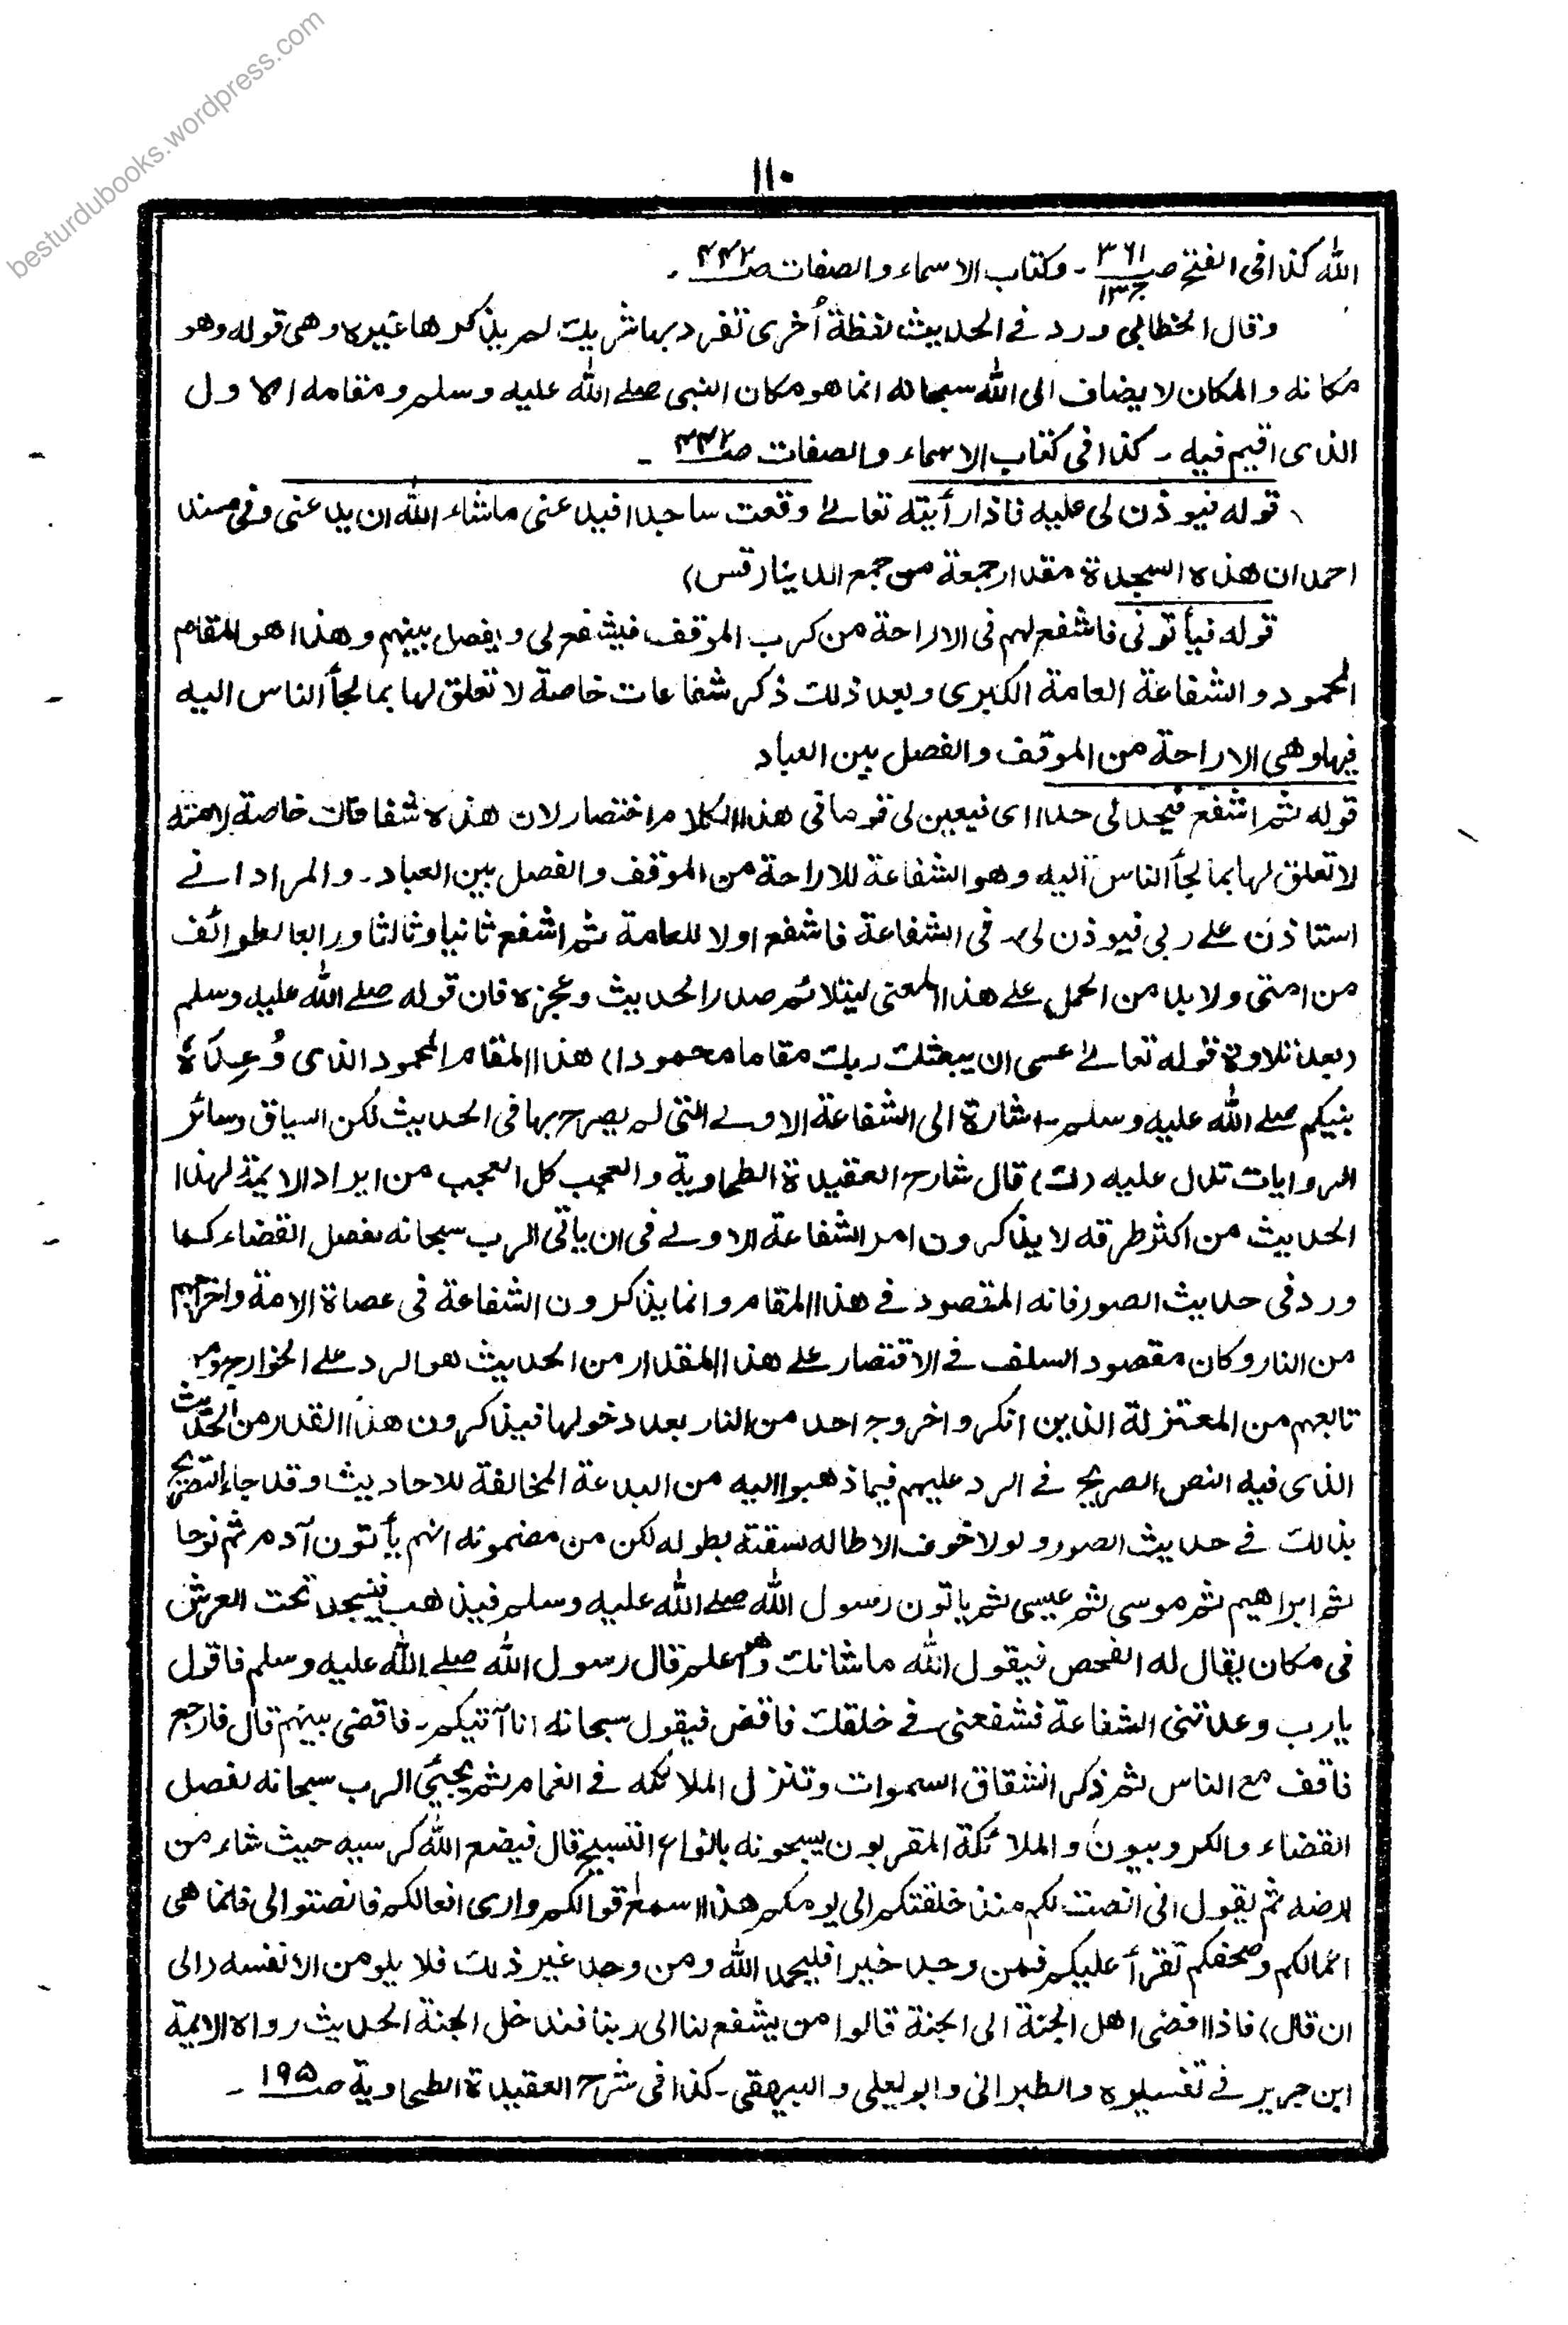 besturdubooks.wordpress.com
١١٠
الله كذا فى الفتح صـ ٣٦١ ج١٣ - وكتاب الاسماء والصفات صـ ٤٤٢ -
وقال الخطابى ورد فے الحديث لفظة أخرى تفرد بها شريك لم يذكرها غيره وهى قوله وهو
مكانه والمكان لا يضاف الى الله سبحانه انما هو مكان النبى صلے الله عليه وسلم ومقامه الاول
الذى اقيم فيه - كذا فى كتاب الاسماء والصفات صـ ٤٤٢ -
قوله فيوذن لى عليه فاذا رأيته تعالے وقعت ساجدا فيدعنى ماشاء الله ان يدعنى وفى مسند
احمد ان هذه السجدة مقدار جمعة من جمع الدنيا رقس)
قوله فيأتونى فاشفع لهم فى الاراحة من كرب الموقف فيشفع لى ويفصل بينهم وهذا هو المقام
المحمود والشفاعة العامة الكبرى وبعد ذلك ذكر شفاعات خاصة لا تعلق لها بما لجأ الناس اليه
فيها وهى الاراحة من الموقف والفصل بين العباد
قوله ثم اشفع فيحد لى حدا اى فيعين لى قوما فى هذا الكلام اختصار لان هذه شفاعات خاصة لامته
لا تعلق لها بما لجأ الناس اليه وهو الشفاعة للاراحة من الموقف والفصل بين العباد - والمراد انے
استاذن علے ربى فيوذن لى فى الشفاعة فاشفع اولا للعامة ثم اشفع ثانيا وثالثا ورابعا لطوائف
من امتى ولا بد من الحمل علے هذا المعنى ليتلائم صدر الحديث وعجزه فان قوله صلے الله عليه وسلم
(بعد تلاوة قوله تعالے عسى ان يبعثك ربك مقاما محمودا) هذا المقام المحمود الذى وُعِدَهُ
نبيكم صلے الله عليه وسلم - اشارة الى الشفاعة الاولے التى لم يصرح بها فى الحديث لكن السياق وسائر
الروايات تدل عليه (ت) قال شارح العقيدة الطحاوية والعجب كل العجب من ايراد الايمة لهذا
الحديث من اكثر طرقه لا يذكرون امر الشفاعة الاولے فى ان ياتى الرب سبحانه بفصل القضاء كما
ورد فى حديث الصور فانه المقصود فے هذا المقام وانما يذكرون الشفاعة فى عصاة الامة واخراجهم
من النار وكان مقصود السلف فے الاقتصار علے هذا المقدار من الحديث هو الرد علے الخوارج ومن
تابعهم من المعتزلة الذين انكروا خروج احد من النار بعد دخولها فيذكرون هذا القدر من الحديث
الذى فيه النص الصريح فے الرد عليهم فيما ذهبوا اليه من البدعة المخالفة للاحاديث وقد جاء التصريح
بذالك فے حديث الصور ولولا خوف الاطاله لسقته بطوله لكن من مضمونه انهم يأتون آدم ثم نوحا
ثم ابراهيم ثم موسى ثم عيسى ثم ياتون رسول الله صلے الله عليه وسلم فيذهب فيسجد تحت العرش
فى مكان يقال له الفحص فيقول الله ماشانك وهو اعلم قال رسول الله صلے الله عليه وسلم فاقول
يارب وعدتنى الشفاعة فشفعنى فے خلقك فاقض فيقول سبحانه انا آتيكم - فاقضى بينهم قال فارجع
فاقف مع الناس ثم ذكر انشقاق السموات وتنزل الملائكه فے الغمام ثم يجيئ الرب سبحانه لفصل
القضاء والكروبيون والملائكة المقربون يسبحونه بانواع التسبيح قال فيضع الله كرسيه حيث شاء من
ارضه ثم يقول انى انصت لكم منذ خلقتكم الى يومكم هذا اسمع اقوالكم وارى افعالكم فانصتوا الى فانما هى
اعمالكم وصحفكم تقرأ عليكم فمن وجد خيرا فليحمد الله ومن وجد غير ذلك فلا يلومن الا نفسه (الى
ان قال) فاذا افضى اهل الجنة الى الجنة قالوا من يشفع لنا الى ربنا فندخل الجنة الحديث رواه الايمة
ابن جرير فے تفسيره والطبرانى وابو يعلى والبيهقى - كذا فى شرح العقيدة الطحاوية صـ ١٩٥ -